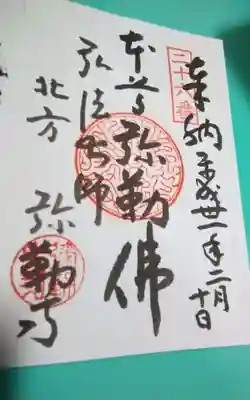 奉納平成丗一年二月十日
二十六番
本尊弥勒佛
弘法大師
北方 弥勒寺